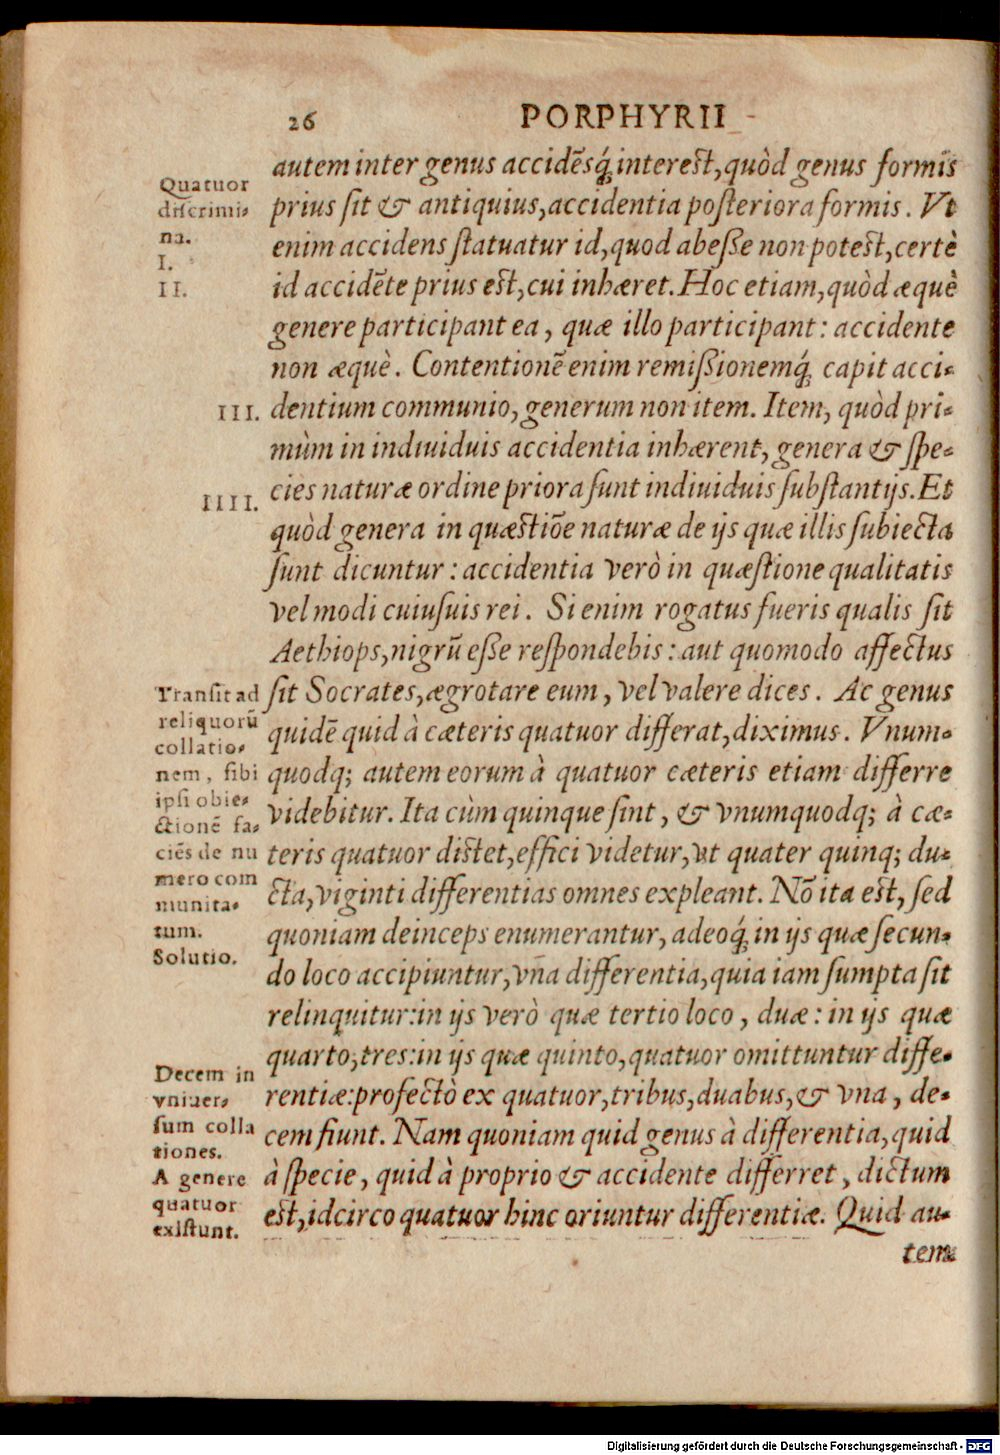 26 PORPHYRII
autem inter genus accidēsq́; interest, quòd genus formis
prius sit & antiquius, accidentia posteriora formis. Vt
enim accidens statuatur id, quod abeſſe non potest, certè
id accidēte prius est, cui inhæret. Hoc etiam, quòd æquè
genere participant ea, quæ illo participant: accidente
non æquè. Contentionē enim remiſſionemq́; capit acci-
dentium communio, generum non item. Item, quòd pri-
mùm in indiuiduis accidentia inhærent, genera & ſpe-
cies naturæ ordine priora ſunt indiuiduis ſubſtantijs. Et
quòd genera in quæstiōe naturæ de ijs quæ illis ſubiecta
ſunt dicuntur: accidentia verò in quæſtione qualitatis
vel modi cuiuſuis rei. Si enim rogatus fueris qualis ſit
Aethiops, nigrū eſſe reſpondebis: aut quomodo affectus
ſit Socrates, ægrotare eum, vel valere dices. Ac genus
quidē quid à cæteris quatuor differat, diximus. Vnum-
quodq; autem eorum à quatuor cæteris etiam differre
videbitur. Ita cùm quinque ſint, & vnumquodq; à cæ-
teris quatuor distet, effici videtur, vt quater quinq; du-
cta, viginti differentias omnes expleant. Nō ita est, ſed
quoniam deinceps enumerantur, adeoq́; in ijs quæ ſecun-
do loco accipiuntur, vn̄a differentia, quia iam ſumpta ſit
relinquitur: in ijs verò quæ tertio loco, duæ: in ijs quæ
quarto, tres: in ijs quæ quinto, quatuor omittuntur diffe-
rentiæ: profectò ex quatuor, tribus, duabus, & vna, de-
cem fiunt. Nam quoniam quid genus à differentia, quid
à ſpecie, quid à proprio & accidente differret, dictum
est, idcirco quatuor hinc oriuntur differentiæ. Quid au-
tem
Quatuor
diſcrimi-
na.
I.
II.
III.
IIII.
Tranſit ad
reliquorū
collatio-
nem, ſibi
ipſi obie-
ctionē fa-
ciēs de nu
mero com
munita-
tum.
Solutio.
Decem in
vniuer-
ſum colla
tiones.
A genere
quatuor
exiſtunt.
Digitalisierung gefördert durch die Deutsche Forschungsgemeinschaft - DFG